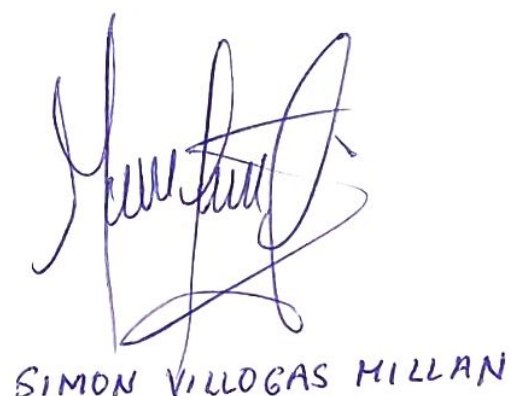 SIMON VILLOGAS MILLAN